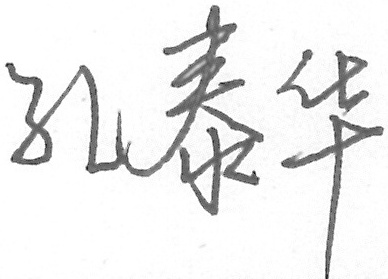 孔泰华